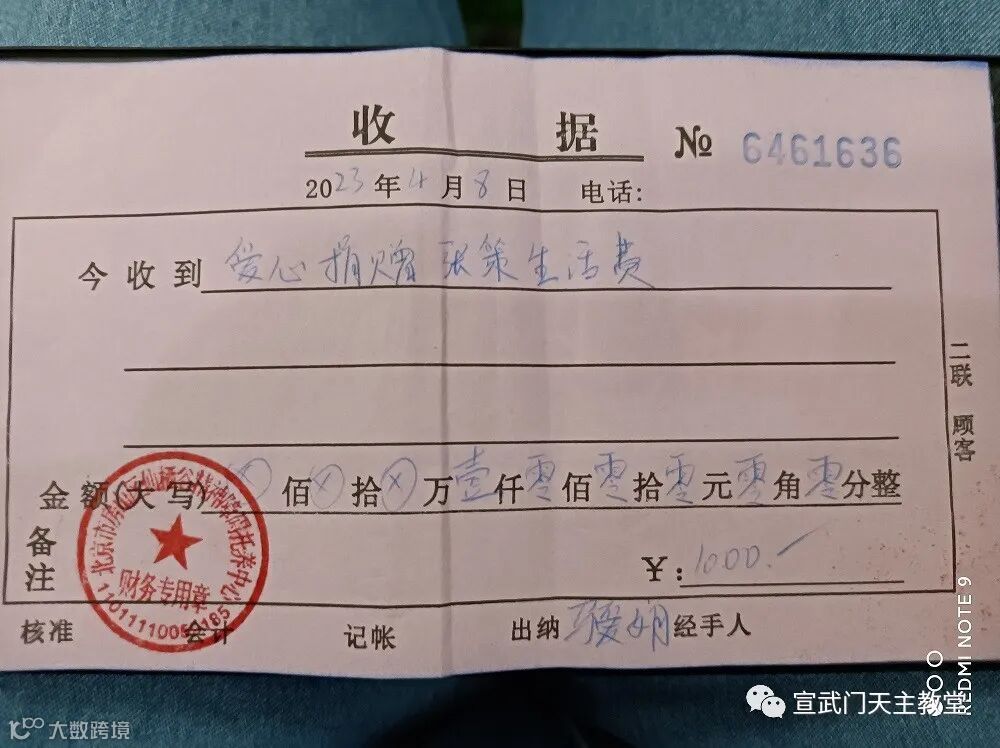 收 据 № 6461636
2023年4月8日 电话:
今收到 爱心捐赠张策生活费
二联 顾客
金额(大写) ⊗佰⊗拾⊗万壹仟零佰零拾零元零角零分整
备注
¥: 1000.
财务专用章
核准 会计 记帐 出纳 经手人
REDMI NOTE 9
宣武门天主教堂
大数跨境